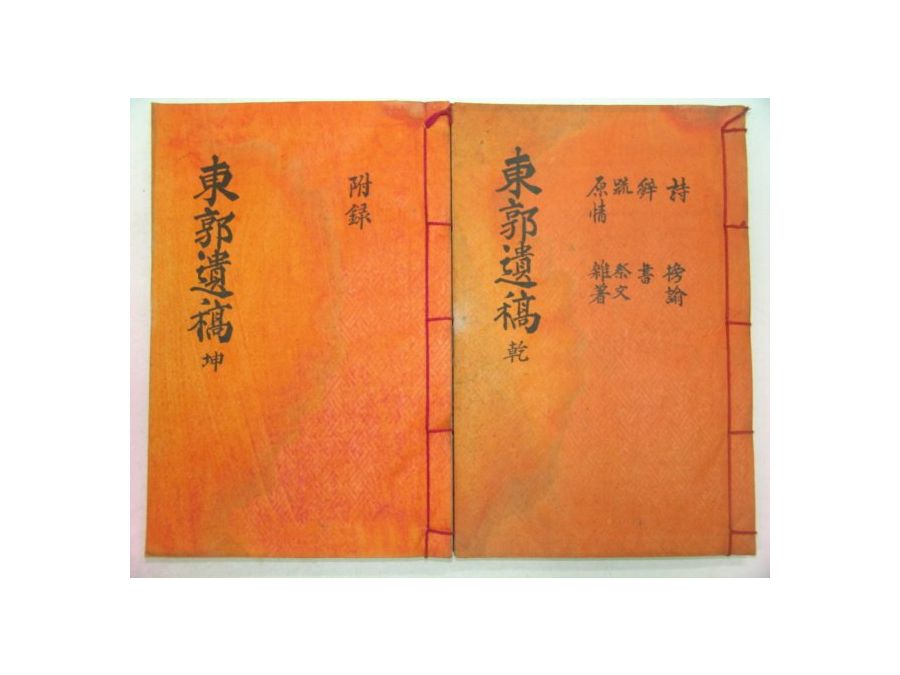 詩 榜諭
書
疏 祭文
原情 雜著
東郭遺稿 乾
附録
東郭遺稿 坤